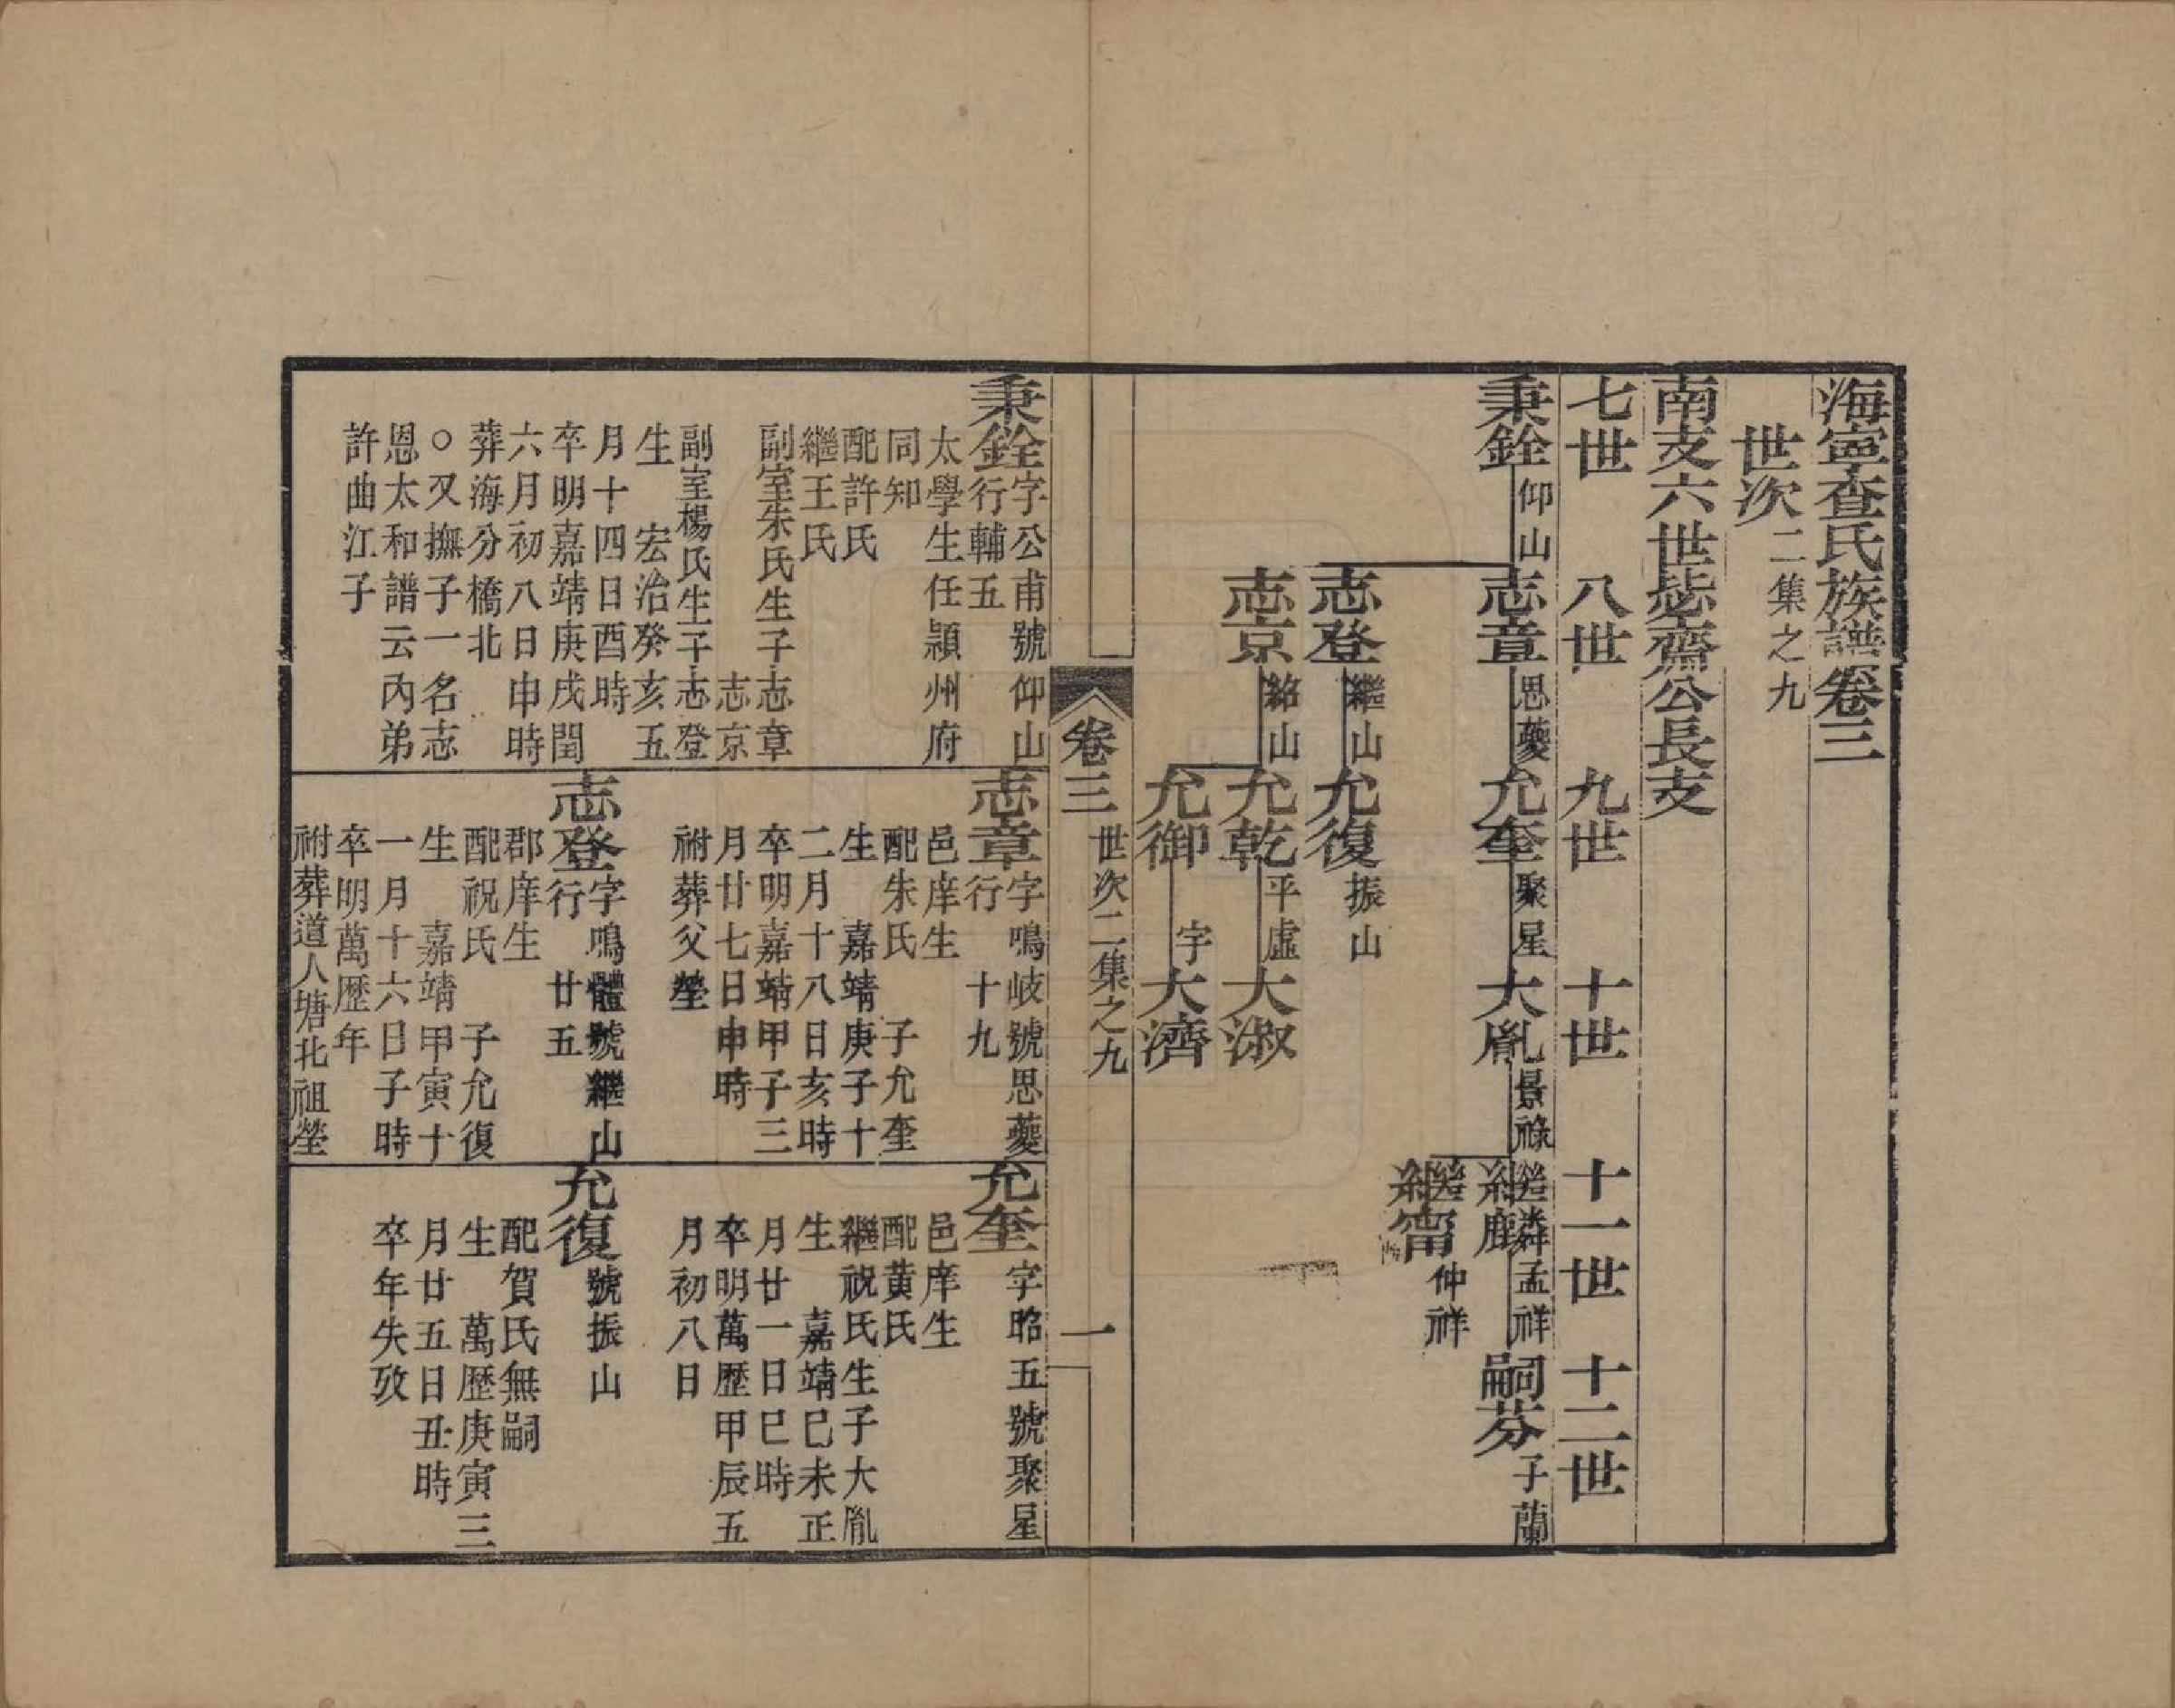 海寧查氏族譜卷三
世次二集之九
南支六世毖齋公長支
七世 八世 九世 十世 十一世 十二世
秉銓仰山 志章思夔 允奎聚星 大胤景祿 繼麟孟祥 嗣芬子蘭
繼甯仲祥
志登繼山 允復振山
志京銘山 允乾平虛 大淑
允御 字 大濟
卷三 世次二集之九 一
秉銓字公甫號仰山
行輔五
太學生任潁州府
同知
配許氏
繼王氏
副室朱氏生子志章
志京
副室楊氏生子志登
生 宏治癸亥五
月十四日酉時
卒明嘉靖庚戌閏
六月初八日申時
葬海分橋北
○又撫子一名志
恩太和譜云內弟
許曲江子
志章字鳴岐號思夔
行 十九
邑庠生
配朱氏 子允奎
生 嘉靖庚子十
二月十八日亥時
卒明嘉靖甲子三
月廿七日申時
祔葬父塋
志登字鳴體號繼山
行 廿五
郡庠生
配祝氏 子允復
生 嘉靖甲寅十
一月十六日子時
卒明萬歷年
祔葬道人塘北祖塋
允奎字昭五號聚星
邑庠生
配黃氏
繼祝氏生子大胤
生 嘉靖己未正
月廿一日巳時
卒明萬歷甲辰五
月初八日
允復號振山
配賀氏無嗣
生 萬歷庚寅三
月廿五日丑時
卒年失攷